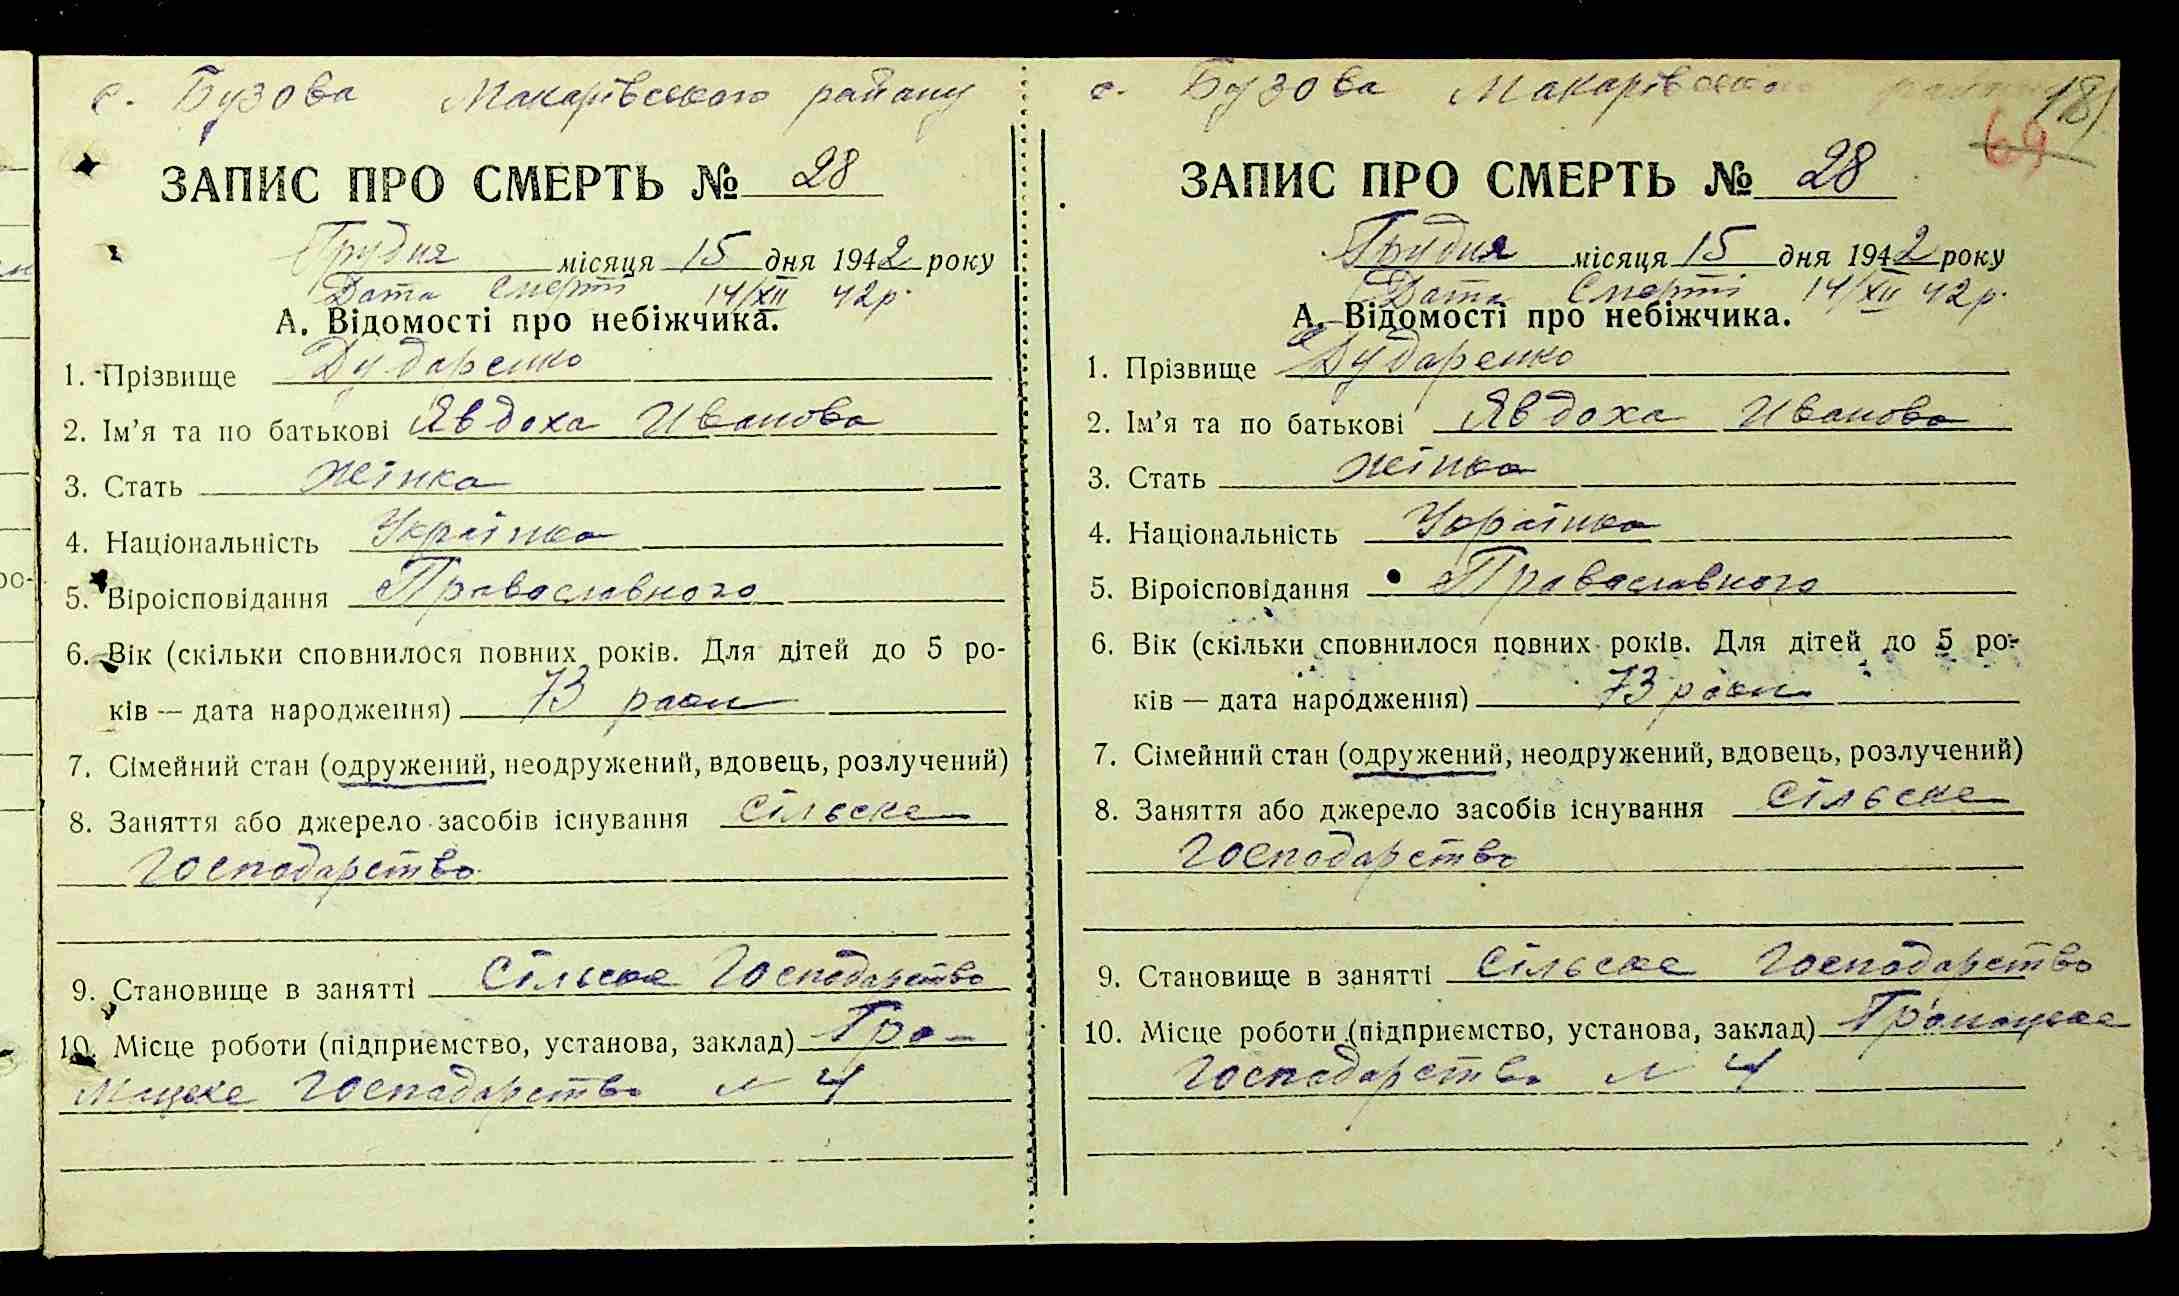 с. Бузова Макарівського району
ЗАПИС ПРО СМЕРТЬ № 28
Грудня місяця 15 дня 1942 року
Дата Смерті 14/XII 42р.
А. Відомості про небіжчика.
1. Прізвище Дударенко
2. Ім'я та по батькові Явдоха Иванова
3. Стать жінка
4. Національність Українка
5. Віроісповідання Православного
6. Вік (скільки сповнилося повних років. Для дітей до 5 ро-
ків — дата народження) 73 роки
7. Сімейний стан (одружений, неодружений, вдовець, розлучений)
8. Заняття або джерело засобів існування сільське
Господарство
9. Становище в занятті Сільське Господарство
10. Місце роботи (підприємство, установа, заклад) Гро-
мацске Господарство № 4
с. Бузова Макарівського району
181
69
ЗАПИС ПРО СМЕРТЬ № 28
Грудня місяця 15 дня 1942 року
Дата Смерті 14/XII 42р.
А. Відомості про небіжчика.
1. Прізвище Дударенко
2. Ім'я та по батькові Явдоха Иванова
3. Стать жінка
4. Національність Українка
5. Віроісповідання Православного
6. Вік (скільки сповнилося повних років. Для дітей до 5 ро-
ків — дата народження) 73 роки
7. Сімейний стан (одружений, неодружений, вдовець, розлучений)
8. Заняття або джерело засобів існування сільське
Господарство
9. Становище в занятті Сільське Господарство
10. Місце роботи (підприємство, установа, заклад) Громацске
Господарство № 4